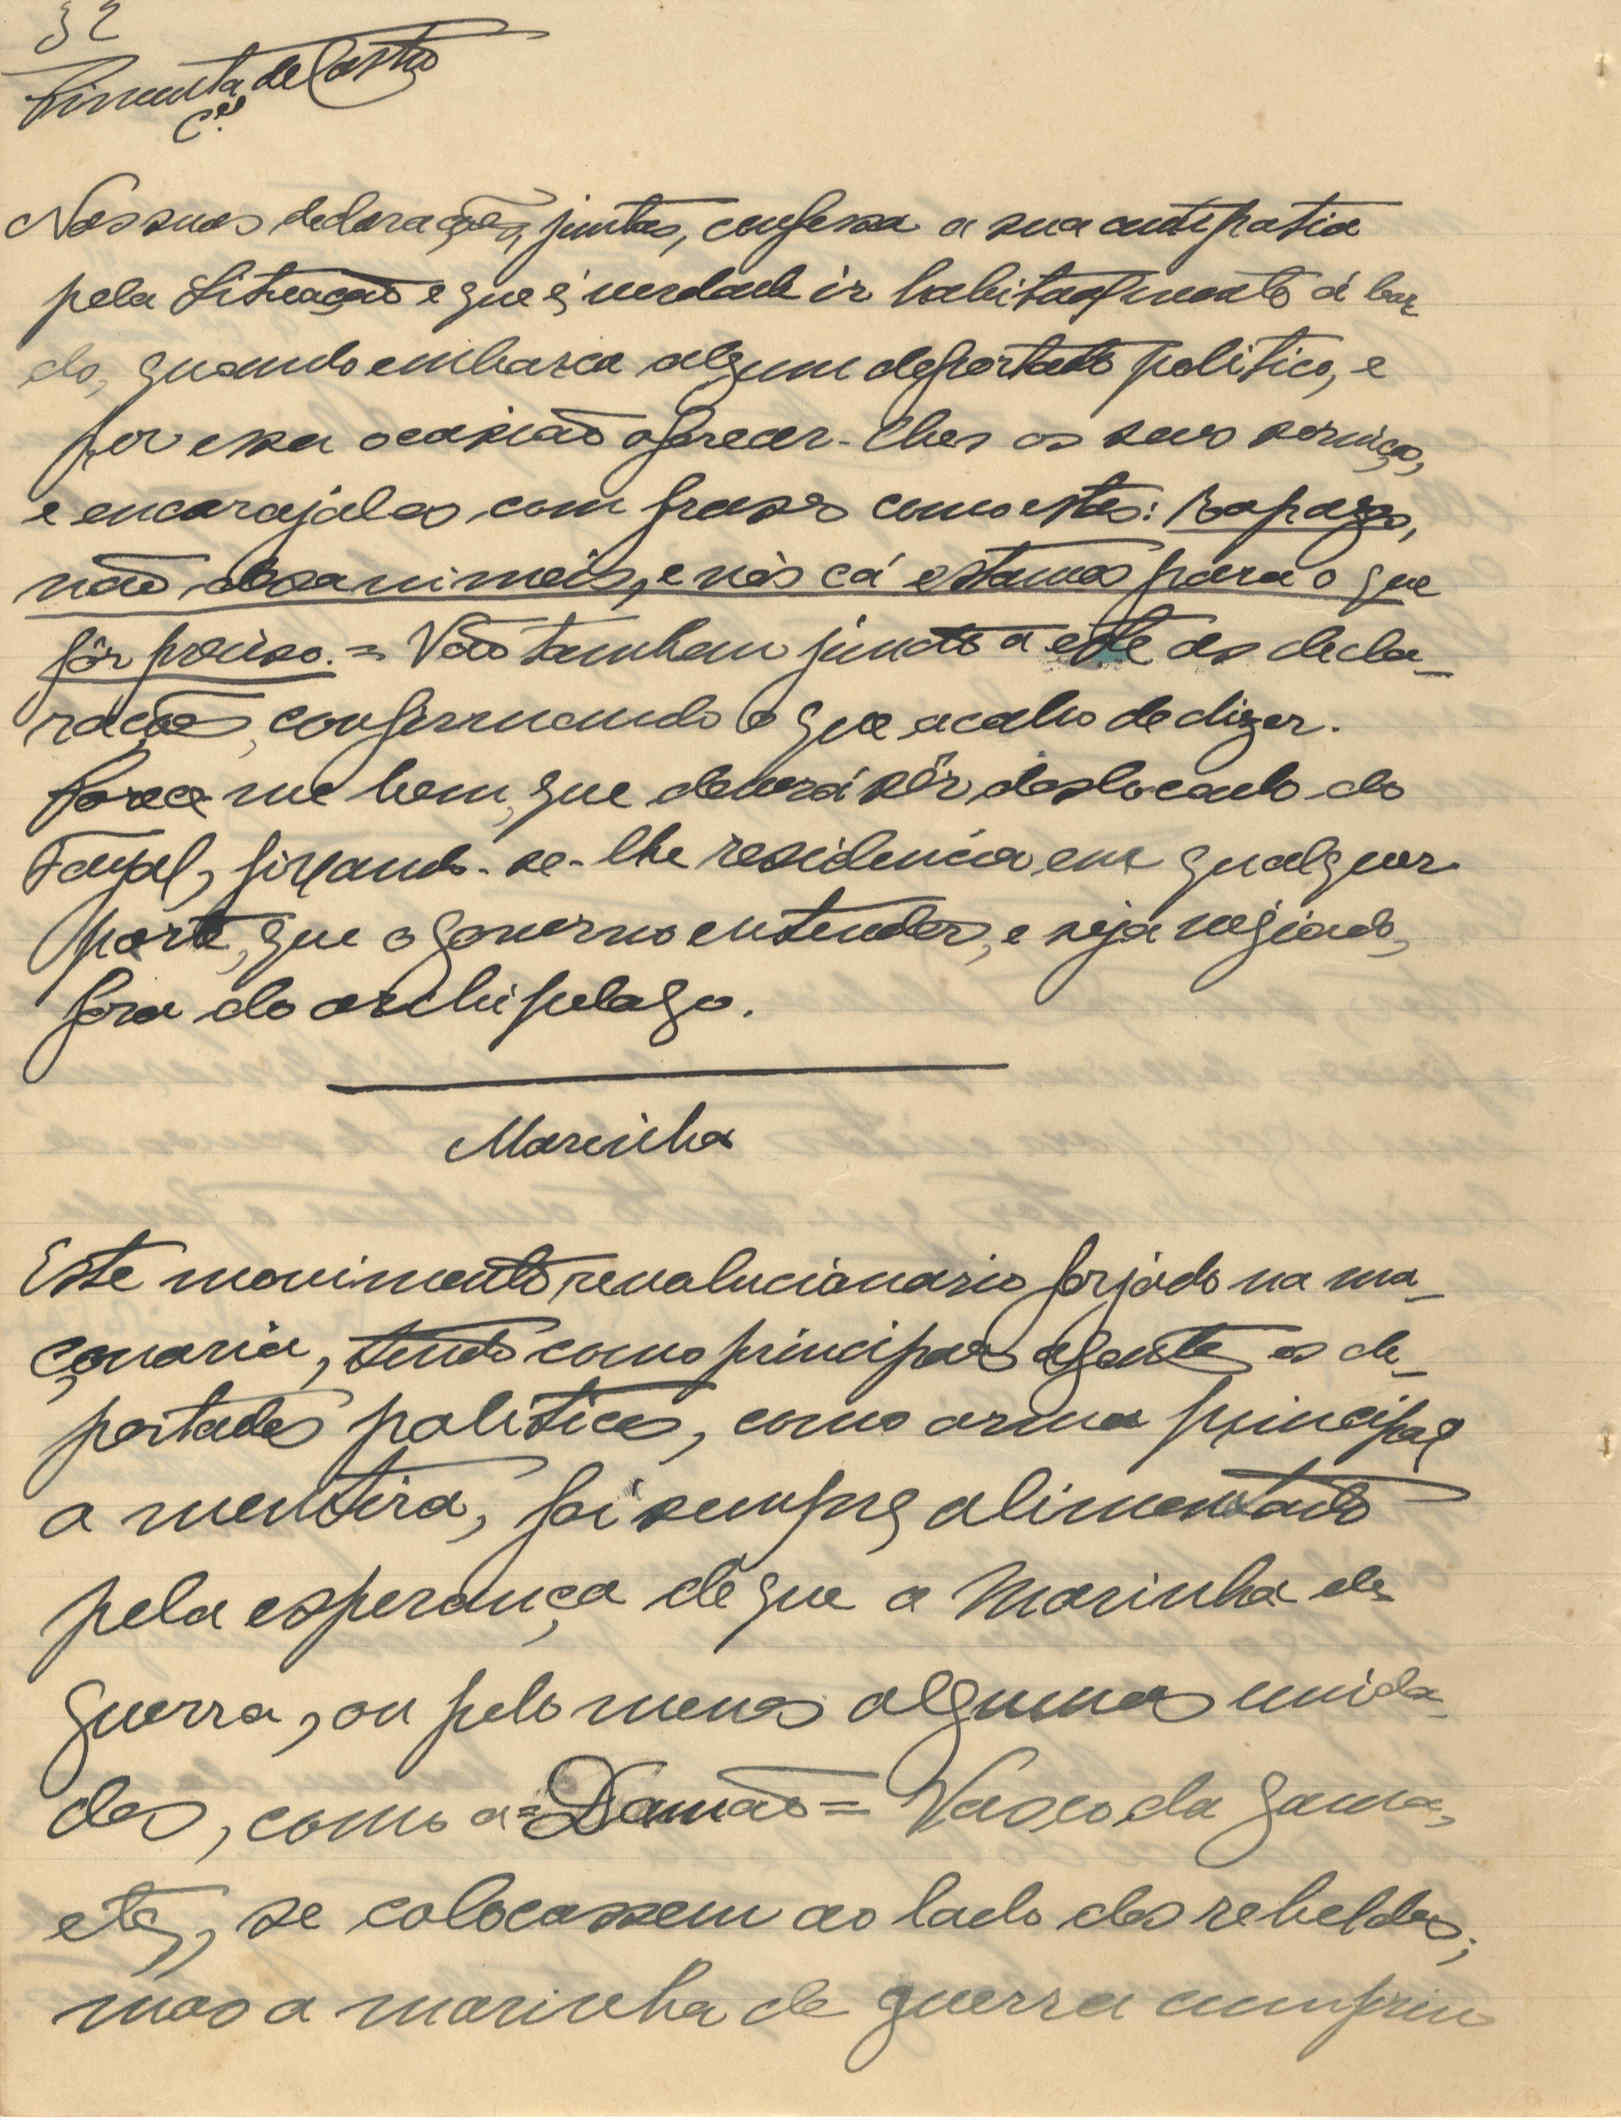 32
Pimenta de Castro
C.el
Nas suas declarações, juntas, confessa a sua antipatia
pela Situação e que é verdade ir habitualmente á bor
do, quando embarca algum deportado politico, e
por essa ocasião oferecer-lhes os seus serviços,
e encorajalos com frases como estas: Rapazes,
não desanimeis, e nós cá estamos para o que
fôr preciso. = Vão tambem junto a este as decla-
rações, confirmando o que acabo de dizer.
Parece me bem, que deverá sêr deslocado do
Fayal, fixando-se-lhe residencia em qualquer
parte, que o governo entender, e seja vigiado,
fora do archipelago.
Marinha
Este movimento revolucionario forjado na ma-
çonaria, tendo como principaes agentes os de-
portados politicos, como arma principal
a mentira, foi sempre alimentado
pela esperança de que a Marinha de
guerra, ou pelo menos algumas unida-
des, como a = Damão = Vasco da Gama,
etc, se colocassem ao lado dos rebeldes;
mas a marinha de guerra cumpriu